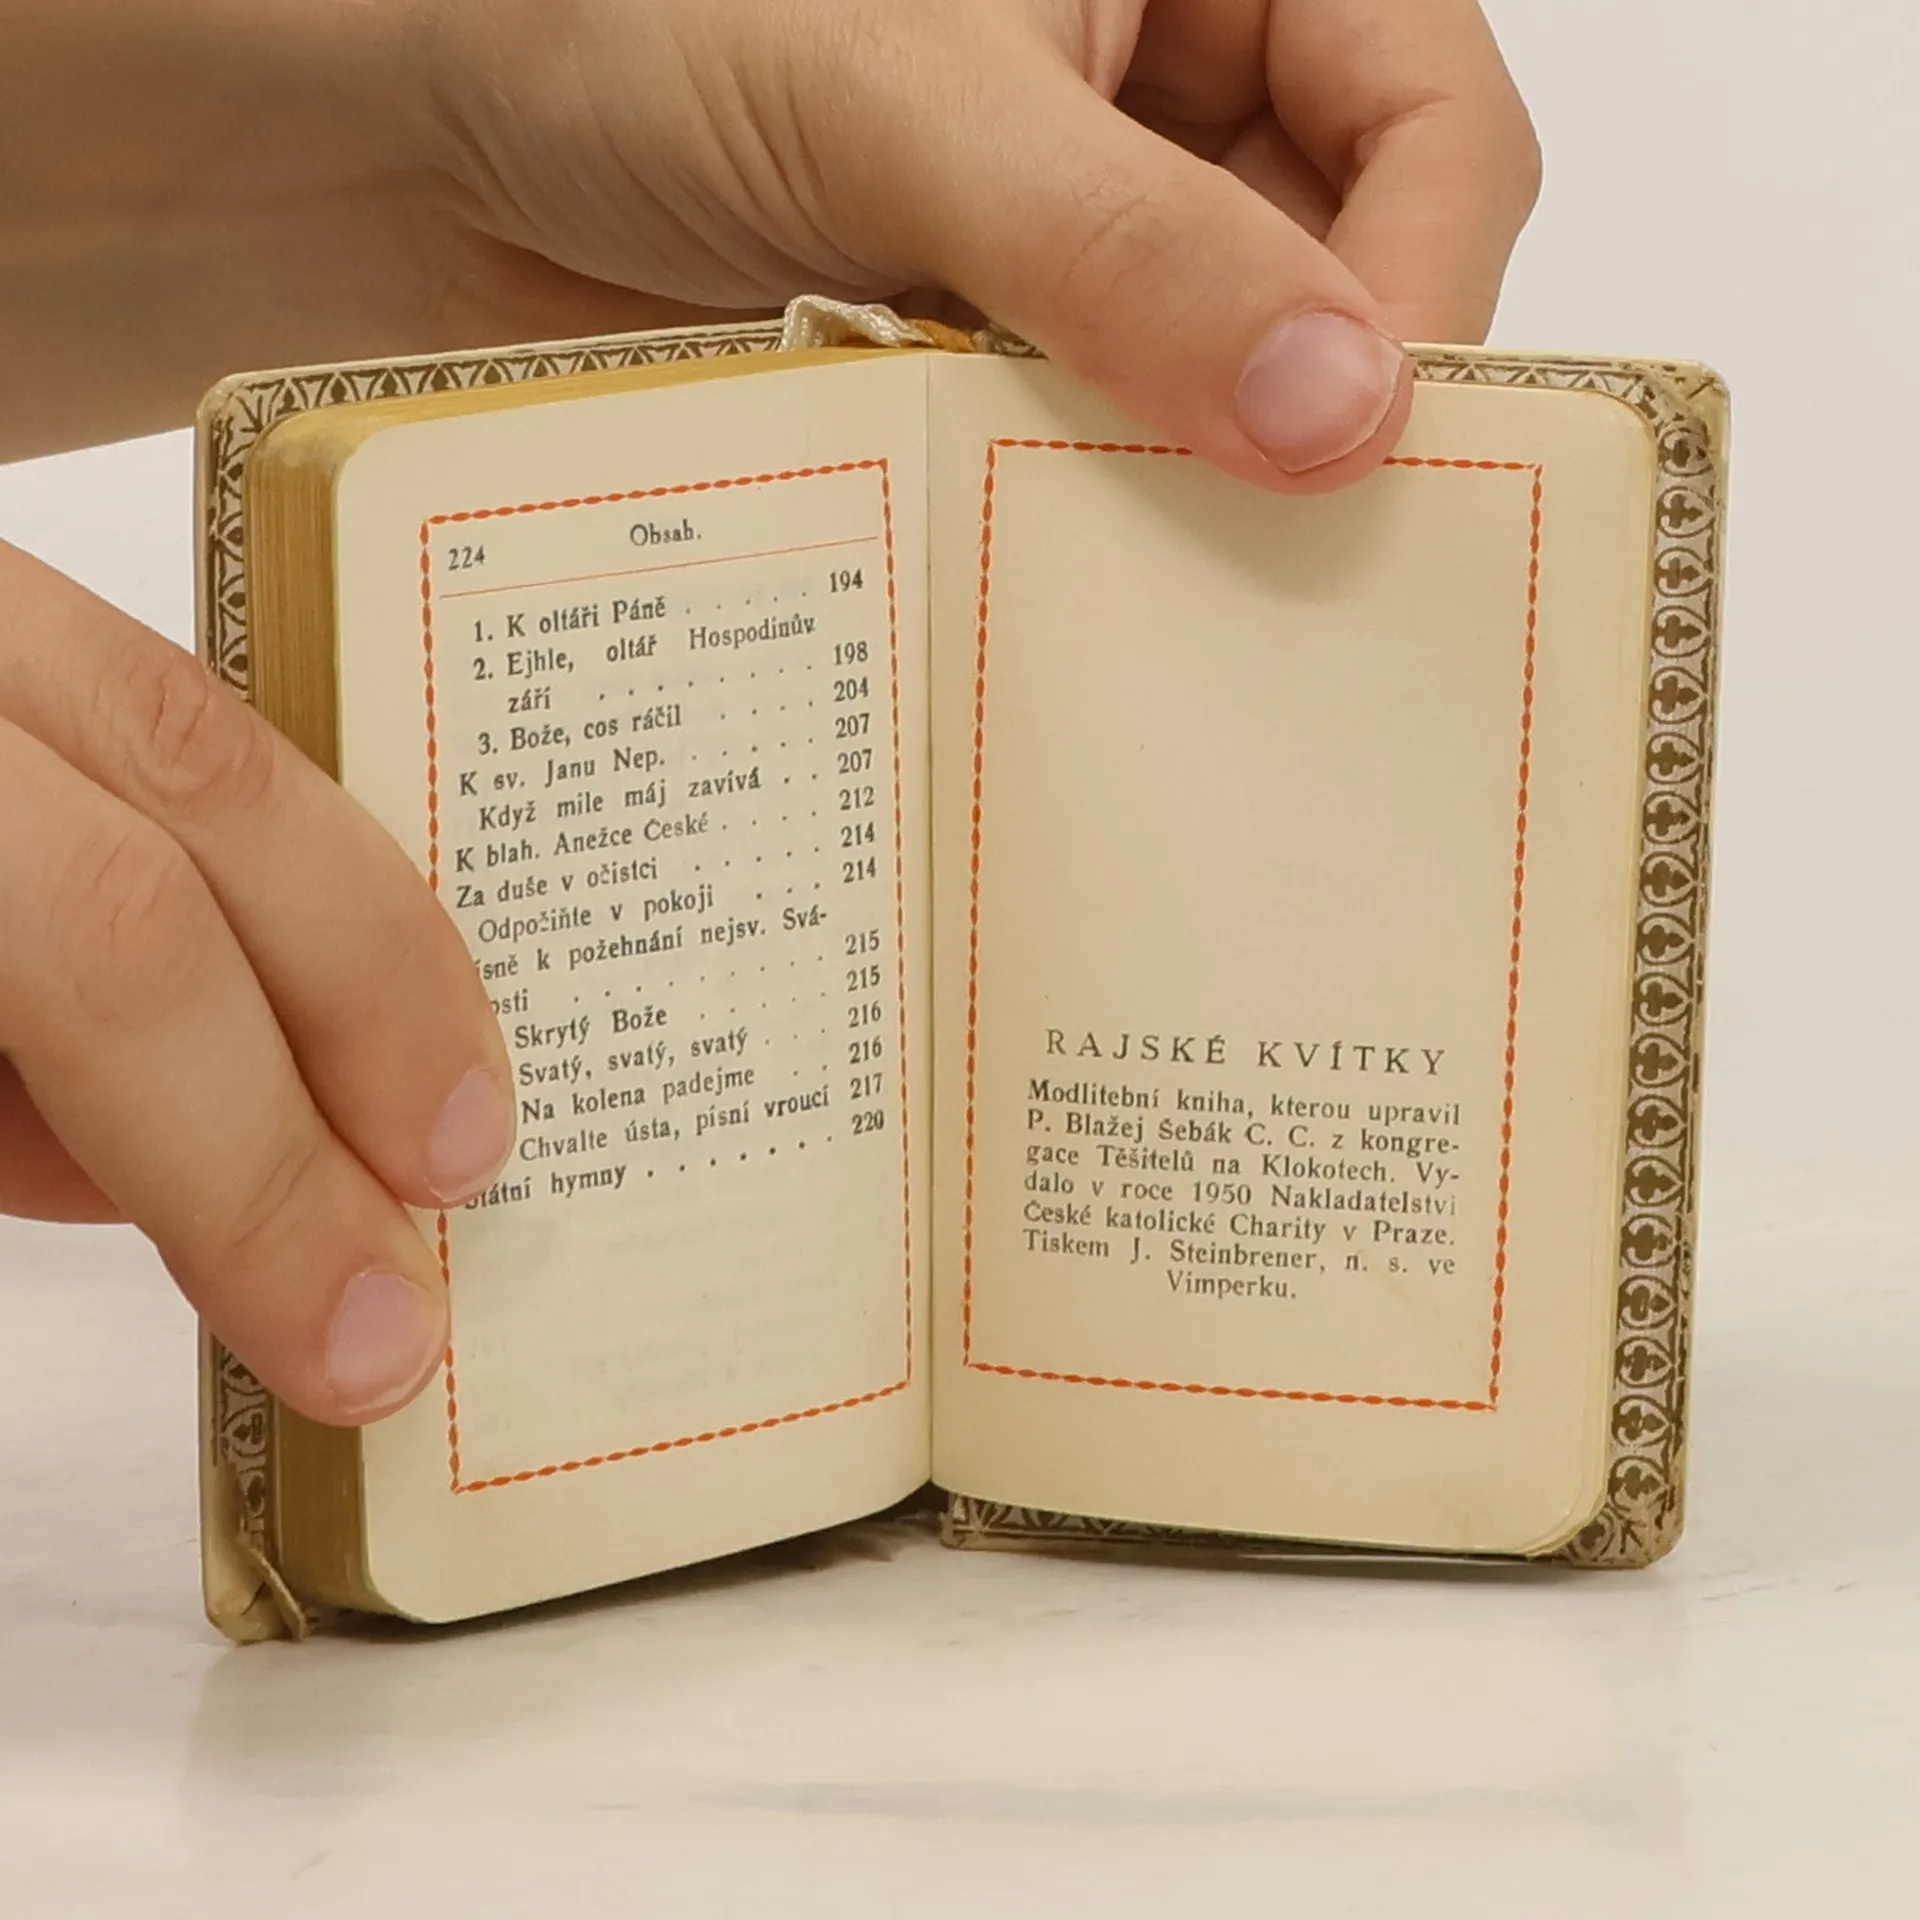 224 Obsah.
1. K oltáři Páně . . . . . 194
2. Ejhle, oltář Hospodinův
září . . . . . . . 198
3. Bože, cos ráčil . . . . 204
K sv. Janu Nep. . . . . . 207
Když mile máj zavívá . . 207
K blah. Anežce České . . . . 212
Za duše v očistci . . . . . 214
Odpočiňte v pokoji . . . 214
ísně k požehnání nejsv. Svá-
osti . . . . . . . . 215
Skrytý Bože . . . . . 215
Svatý, svatý, svatý . . . 216
Na kolena padejme . . 216
Chvalte ústa, písní vroucí 217
Státní hymny . . . . . . . 220
RAJSKÉ KVÍTKY
Modlitební kniha, kterou upravil
P. Blažej Šebák C. C. z kongre-
gace Těšitelů na Klokotech. Vy-
dalo v roce 1950 Nakladatelství
České katolické Charity v Praze.
Tiskem J. Steinbrener, n. s. ve
Vimperku.